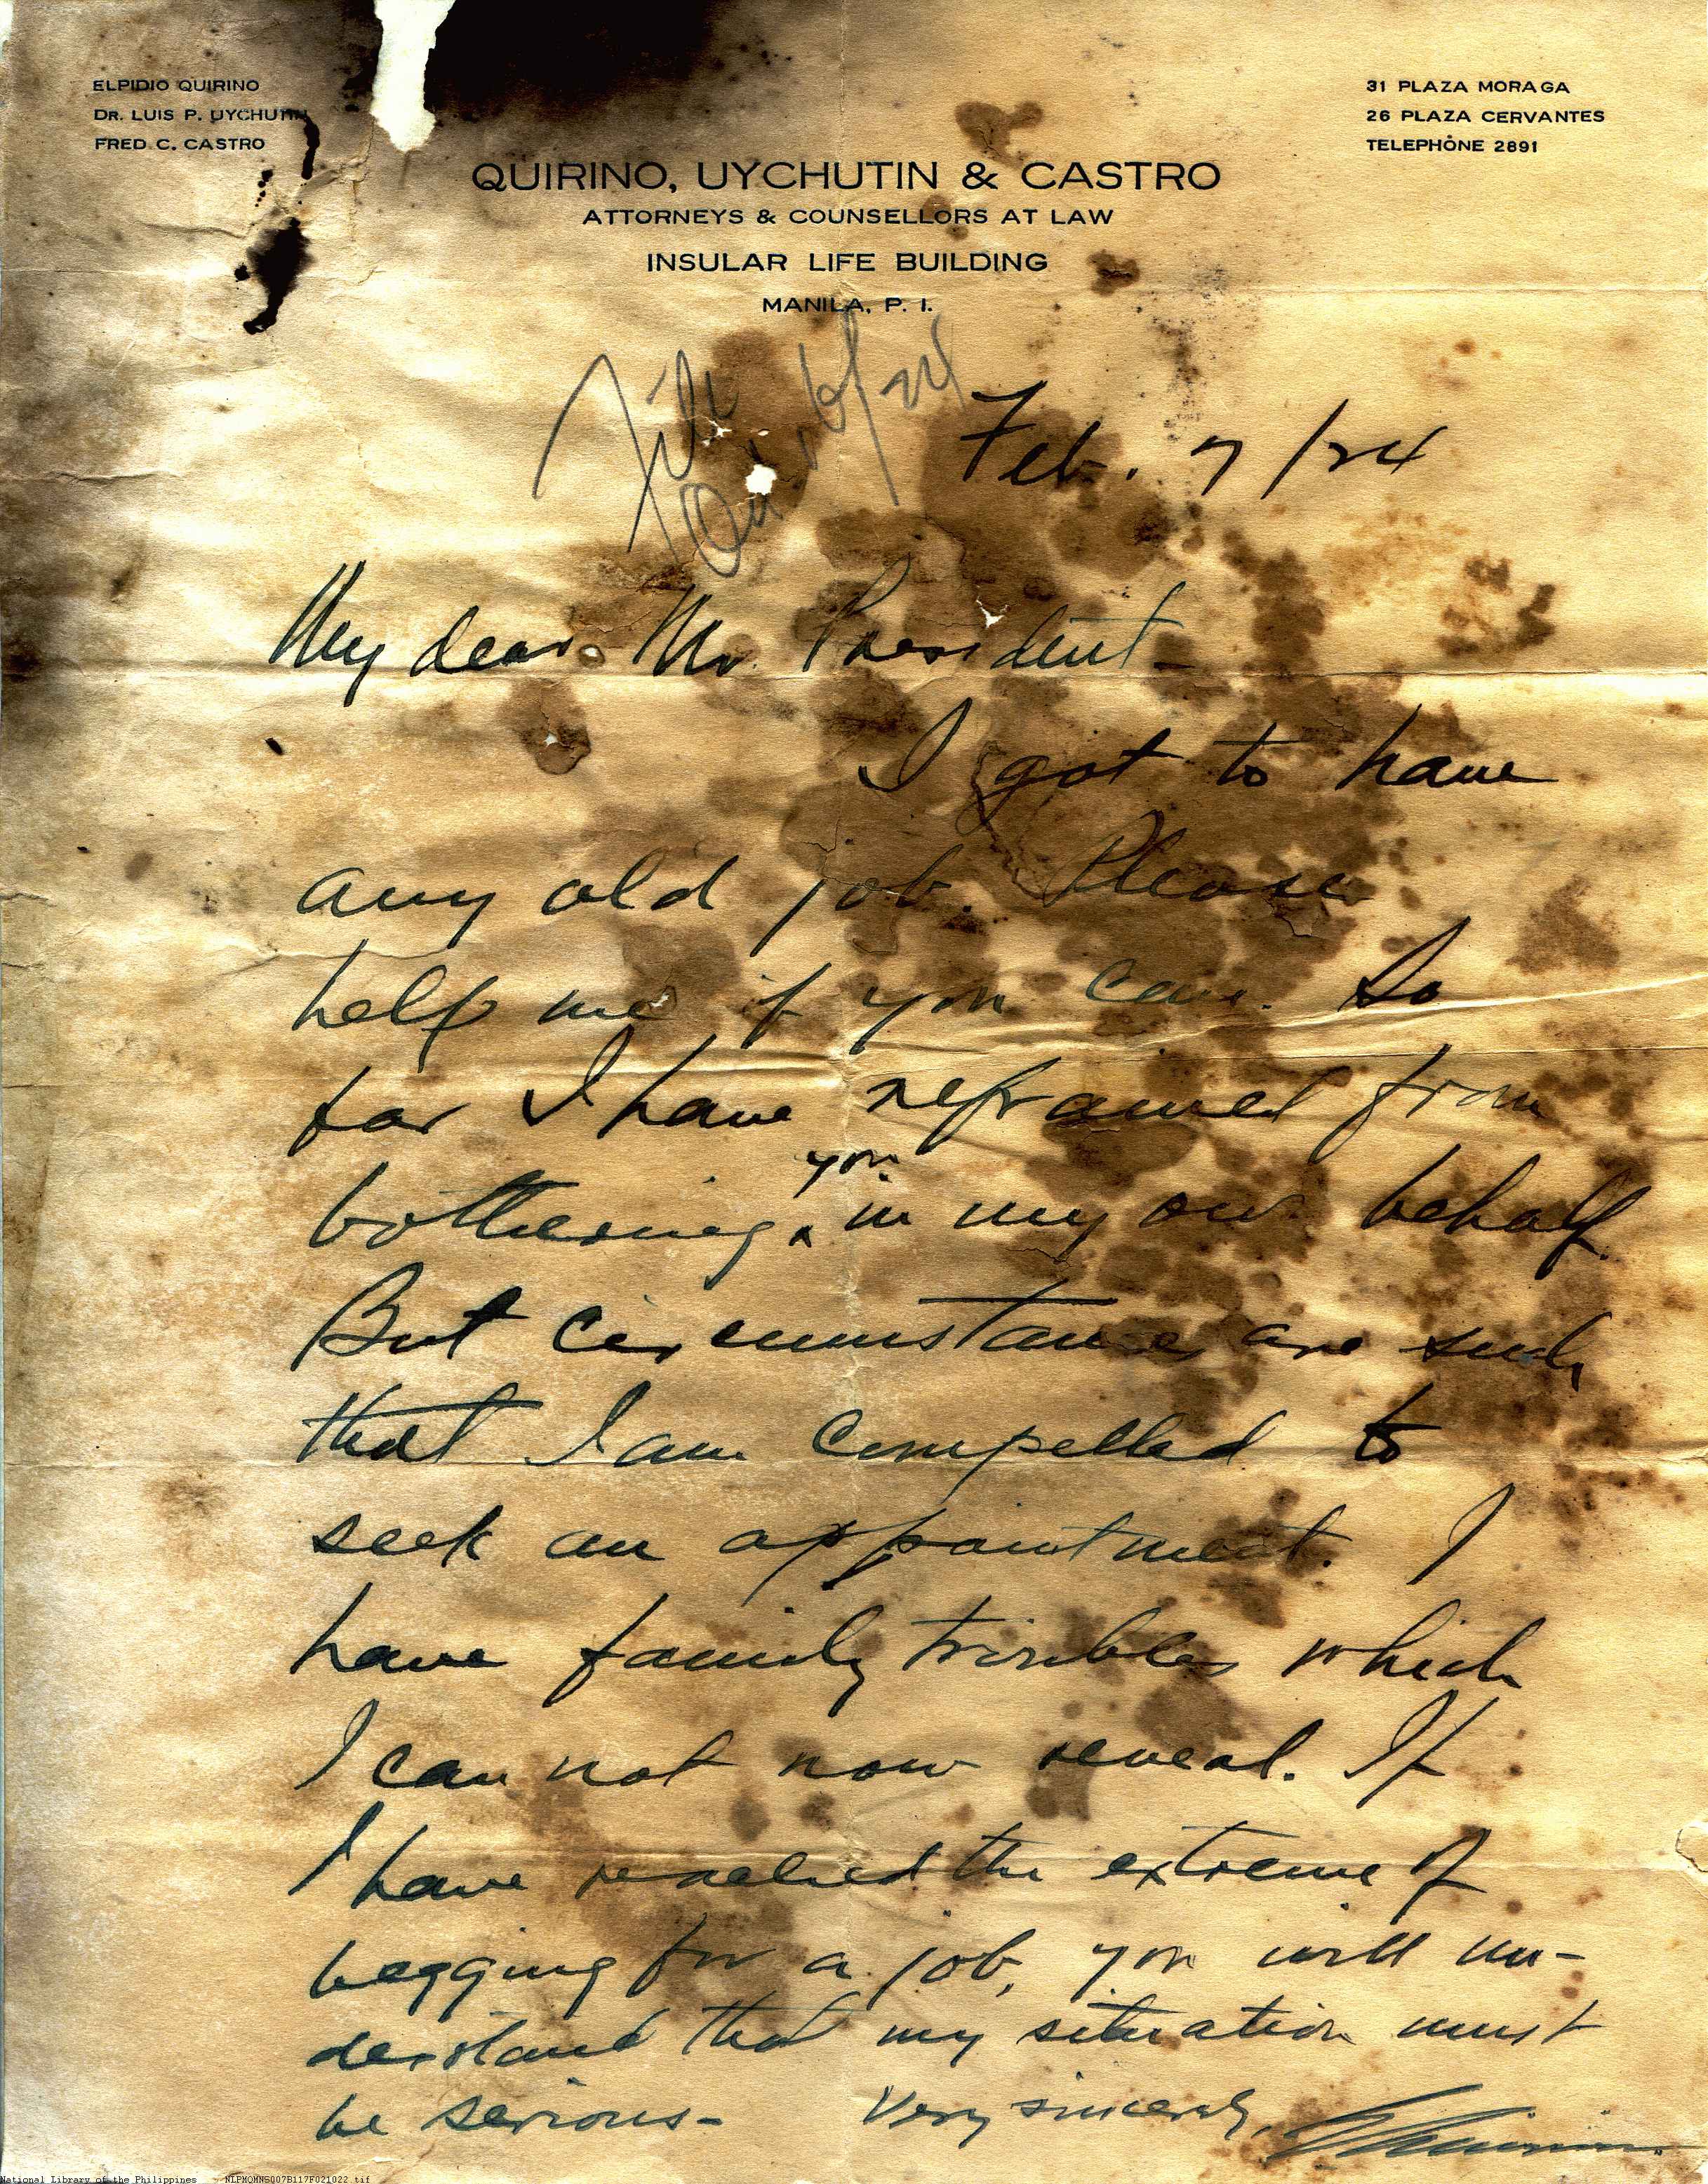 ELPIDIO QUIRINO
DR. LUIS P. UYCHUTIN
FRED C. CASTRO
31 PLAZA MORAGA
26 PLAZA CERVANTES
TELEPHONE 2891
QUIRINO, UYCHUTIN & CASTRO
ATTORNEYS & COUNSELLORS AT LAW
INSULAR LIFE BUILDING
MANILA, P. I.
File
Feb. 7/24
My dear Mr. President-
I got to have
any old job. Please
help me if you can. So
far I have refrained from
bothering you in my own behalf.
But circumstances are such
that I am compelled to
seek an appointment. I
have family troubles which
I can not now reveal. If
I have reached the extreme of
begging for a job, you will un-
derstand that my situation must
be serious-
Very sincerely,
EQuirino
National Library of the Philippines NLPMQMNS007B117F021022.tif